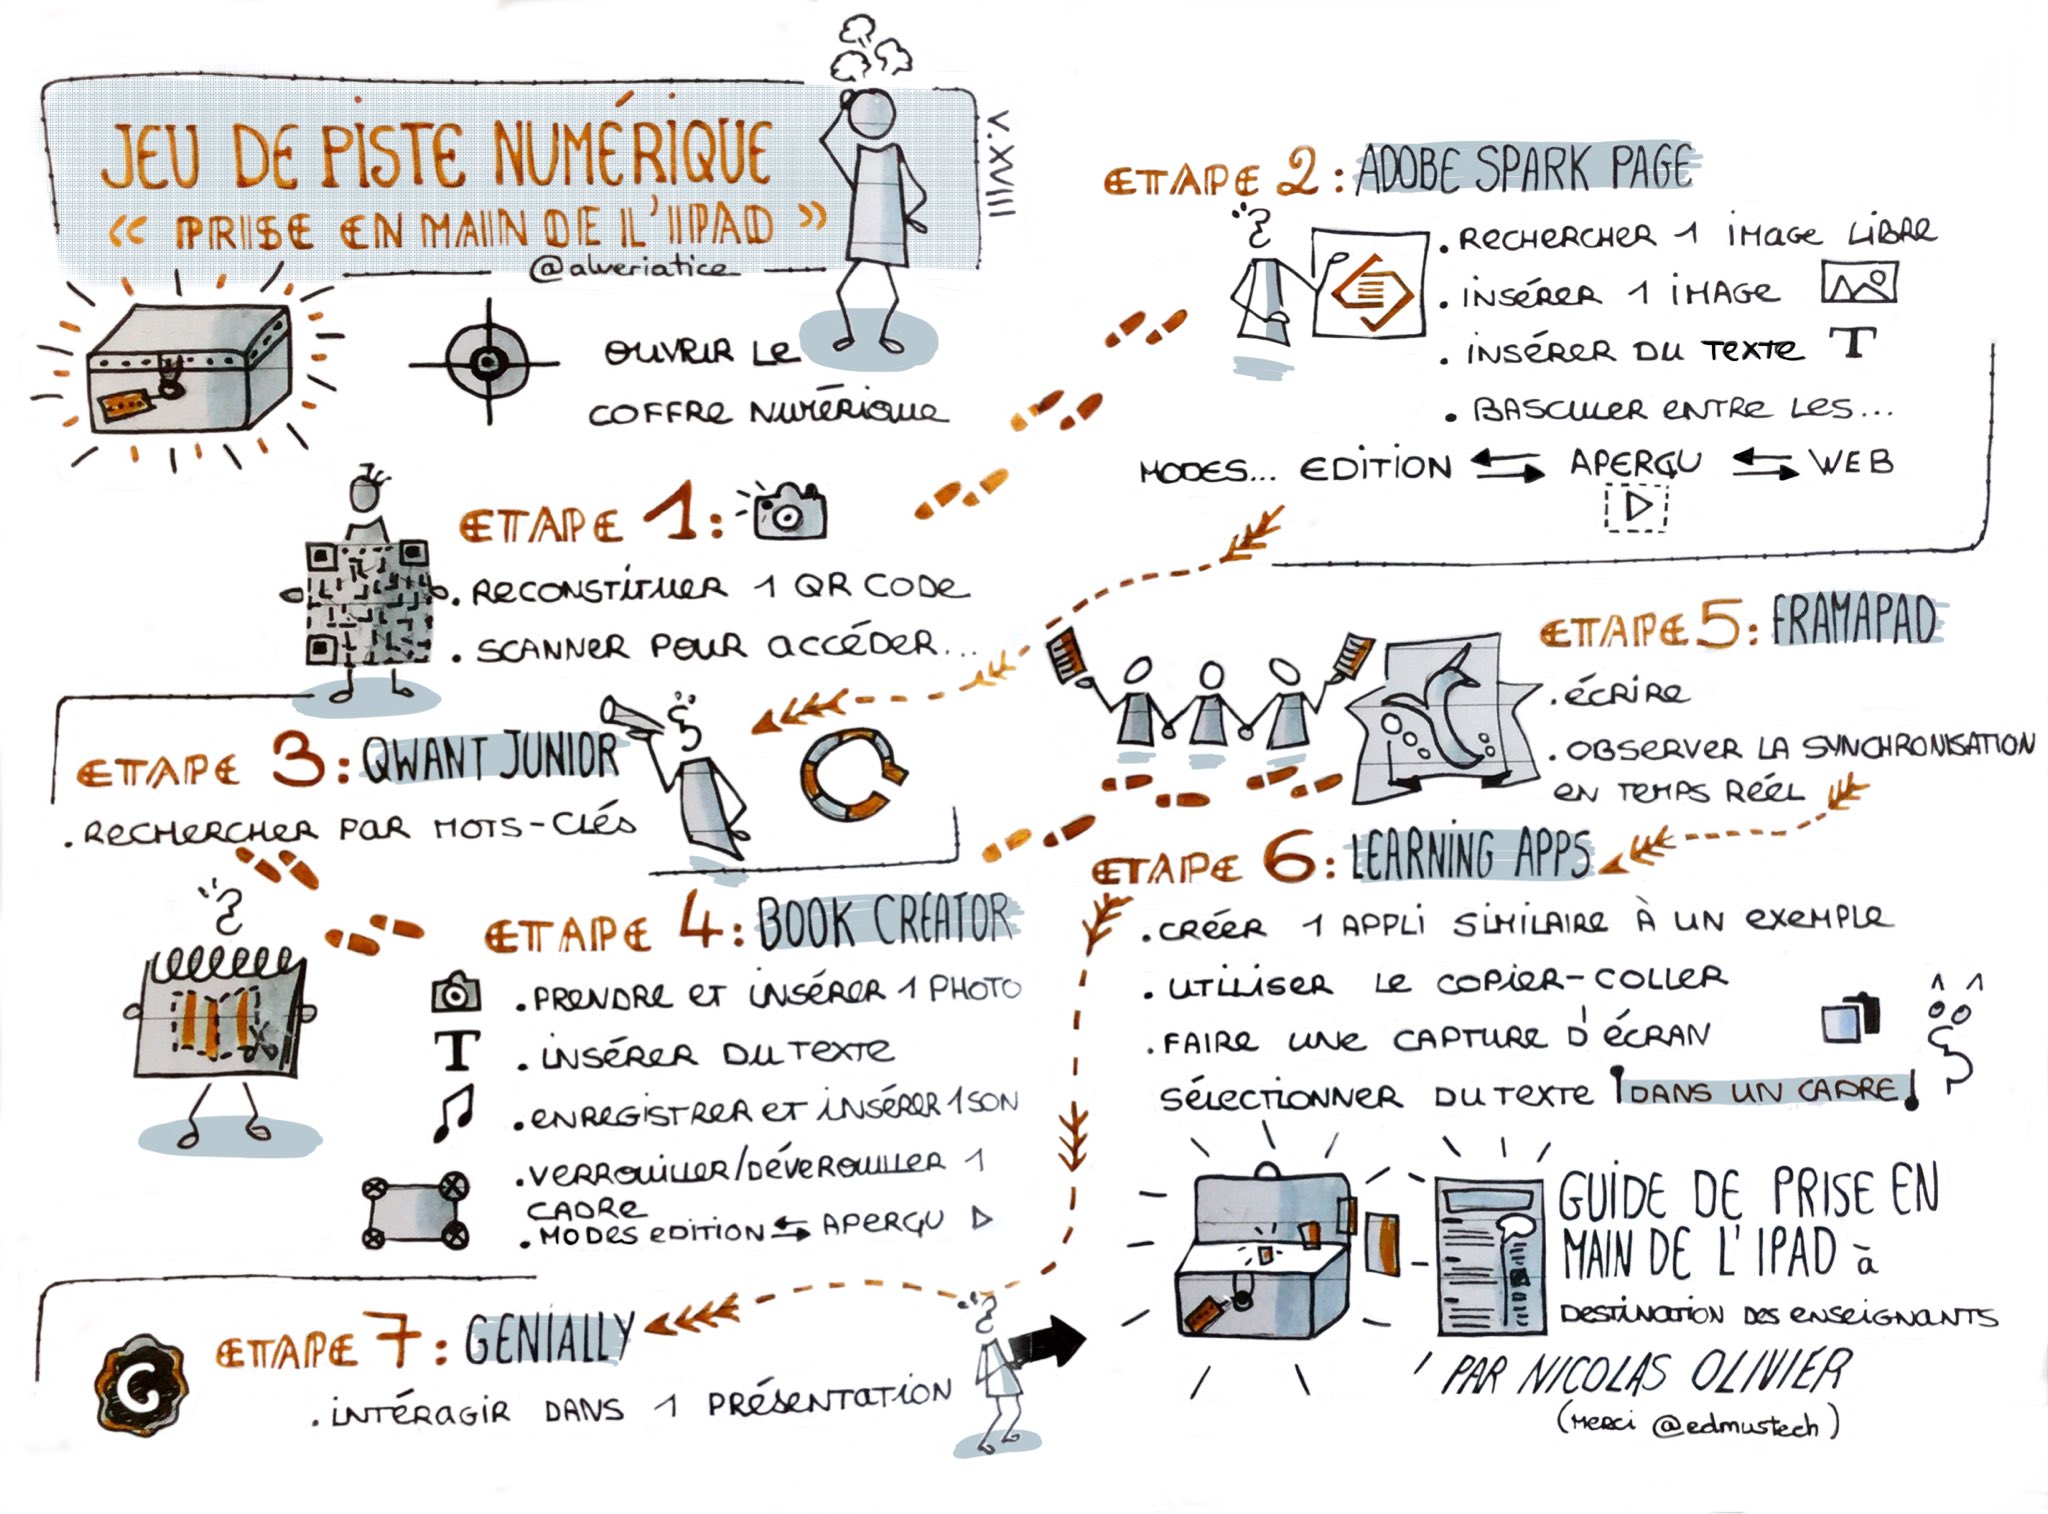 JEU DE PISTE NUMÉRIQUE
« PRISE EN MAIN DE L'IPAD »
@alveriatice
V.XVIII
OUVRIR LE
COFFRE NUMÉRIQUE
ETAPE 1 :
. RECONSTITUER 1 QR CODE
. SCANNER POUR ACCÉDER...
ETAPE 2 : ADOBE SPARK PAGE
. RECHERCHER 1 IMAGE LIBRE
. INSÉRER 1 IMAGE
. INSÉRER DU TEXTE T
. BASCULER ENTRE LES...
MODES... EDITION ⇆ APERÇU ⇆ WEB
ETAPE 3 : QWANT JUNIOR
. RECHERCHER PAR MOTS-CLÉS
ETAPE 4 : BOOK CREATOR
. PRENDRE ET INSÉRER 1 PHOTO
T . INSÉRER DU TEXTE
. ENREGISTRER ET INSÉRER 1 SON
. VERROUILLER/DÉVEROUILLER 1
CADRE
. MODES EDITION ⇆ APERÇU ▷
ETAPE 5 : FRAMAPAD
. ÉCRIRE
. OBSERVER LA SYNCHRONISATION
EN TEMPS RÉEL
ETAPE 6 : LEARNING APPS
. CRÉER 1 APPLI SIMILAIRE À UN EXEMPLE
. UTILISER LE COPIER-COLLER
. FAIRE UNE CAPTURE D'ÉCRAN
SÉLECTIONNER DU TEXTE DANS UN CADRE
ETAPE 7 : GENIALLY
. INTÉRAGIR DANS 1 PRÉSENTATION
G
GUIDE DE PRISE EN
MAIN DE L'IPAD à
DESTINATION DES ENSEIGNANTS
PAR NICOLAS OLIVIER
(MERCI @edmustech)